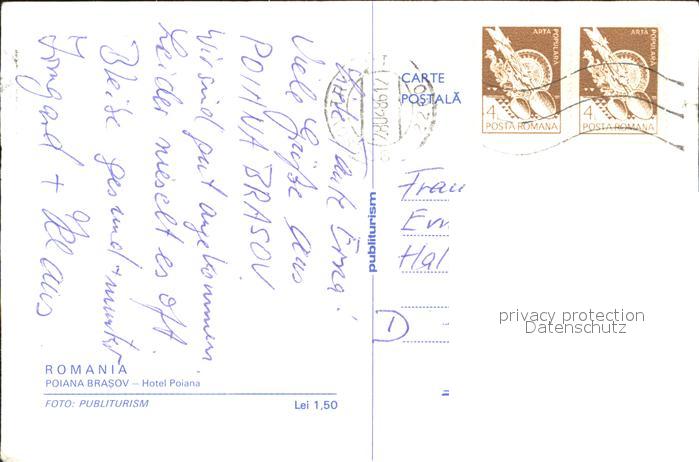 Liebe Tante Erna!
Viele Grüße aus
POIANA BRASOV
Wir sind gut angekommen.
Leider nieselt es oft
Bleibe gesund + munter
Irmgard + Klaus
ROMANIA
POIANA BRAȘOV – Hotel Poiana
FOTO: PUBLITURISM
Lei 1,50
publiturism
CARTE
POȘTALĂ
ARTA POPULARĂ
4
POSTA ROMANA
ARTA POPULARĂ
4
POSTA ROMANA
Frau
Hal
privacy protection
Datenschutz